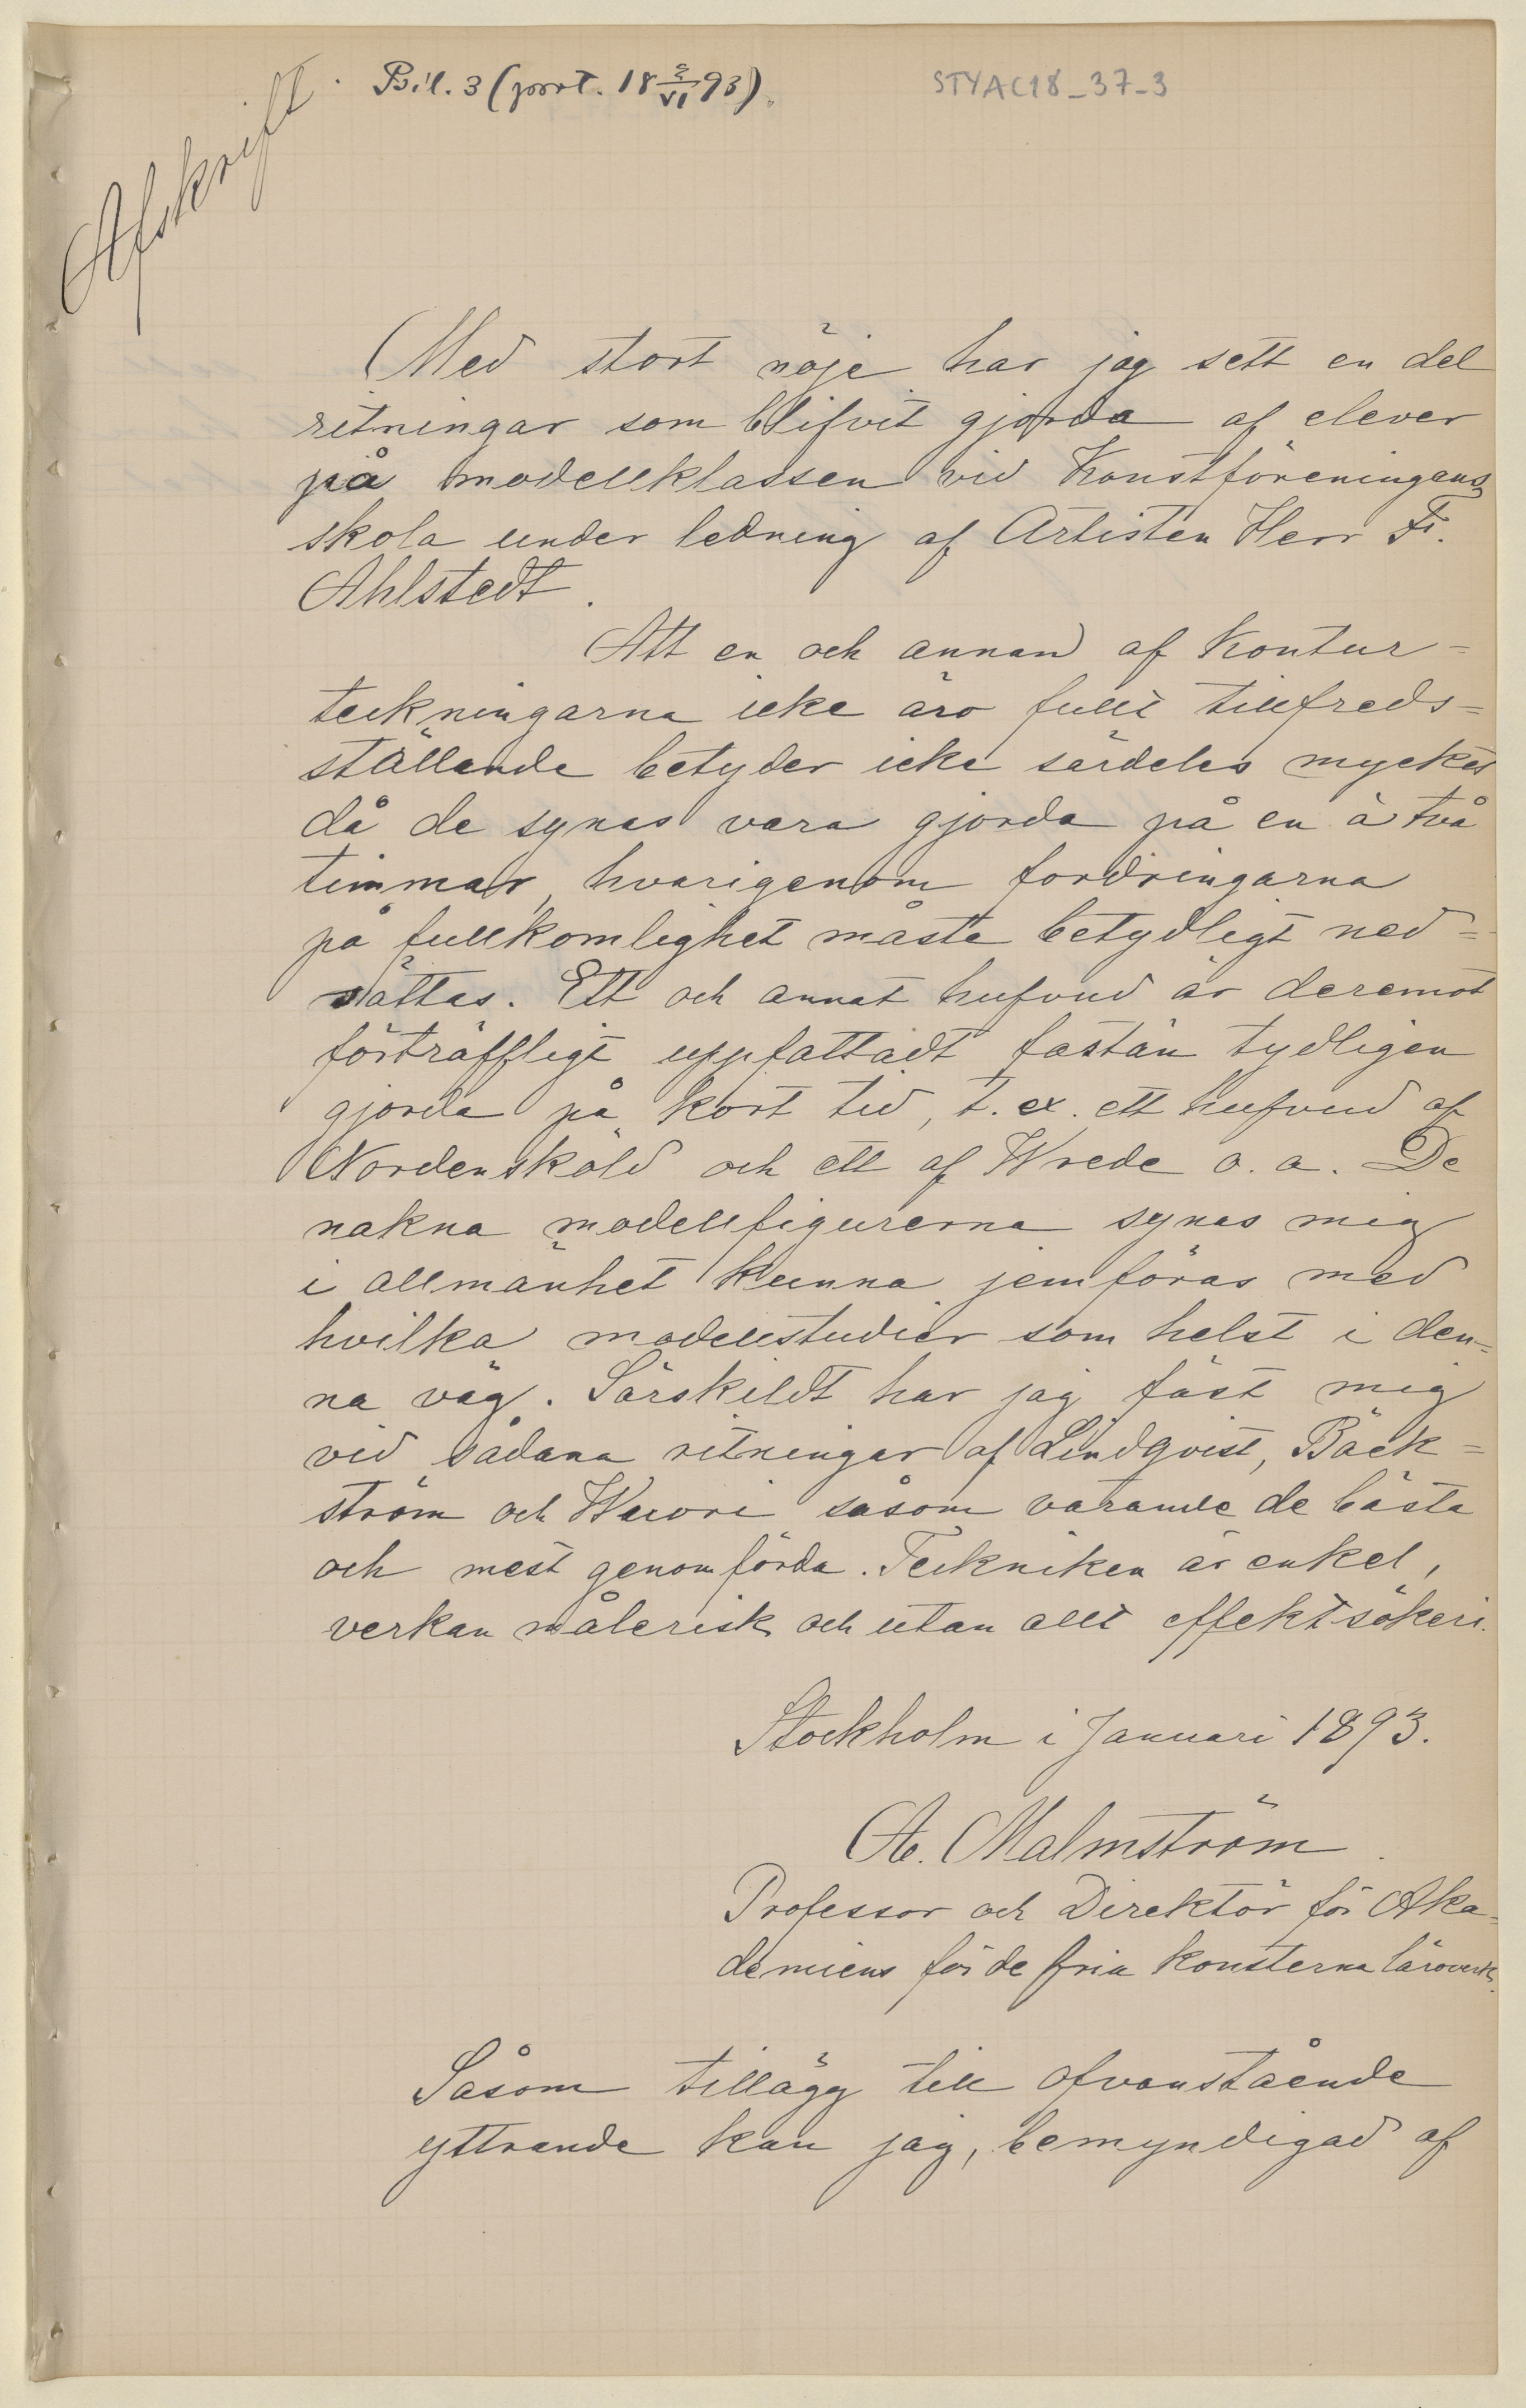 Afskrift.
Bil. 3 (prot. 18 2/VI 93).
STYAC18_37-3
Med stort nöje har jag sett en del
ritningar som blifvit gjorda af elever
på modellklassen vid Konstföreningens
skola under ledning af Artisten Herr Fr.
Ahlstedt.
Att en och annan af Kontur=
teckningarna icke äro fullt tillfreds=
ställande betyder icke särdeles mycket
då de synas vara gjorda på en à två
timmar, hvarigenom fordringarna
på fullkomlighet måste betydligt ned=
sättas. Ett och annat hufvud är deremot
förträffligt uppfattadt fastän tydligen
gjorda på kort tid, t. ex. ett hufvud af
Nordensköld och ett af Wrede o. a. De
nakna modellfigurerna synas mig
i allmänhet kunna jemföras med
hvilka modellstudier som helst i den=
na väg. Särskildt har jag fäst mig
vid sådana ritningar af Lindqvist, Bäck=
ström och Wuori såsom varande de bästa
och mest genomförda. Tekniken är enkel,
verkan målerisk och utan allt effektsökeri.
Stockholm i Januari 1893.
A. Malmström.
Professor och Direktör för Aka=
demiens för de fria konsterna läroverk.
Såsom tillägg till ofvanstående
yttrande kan jag, bemyndigad af